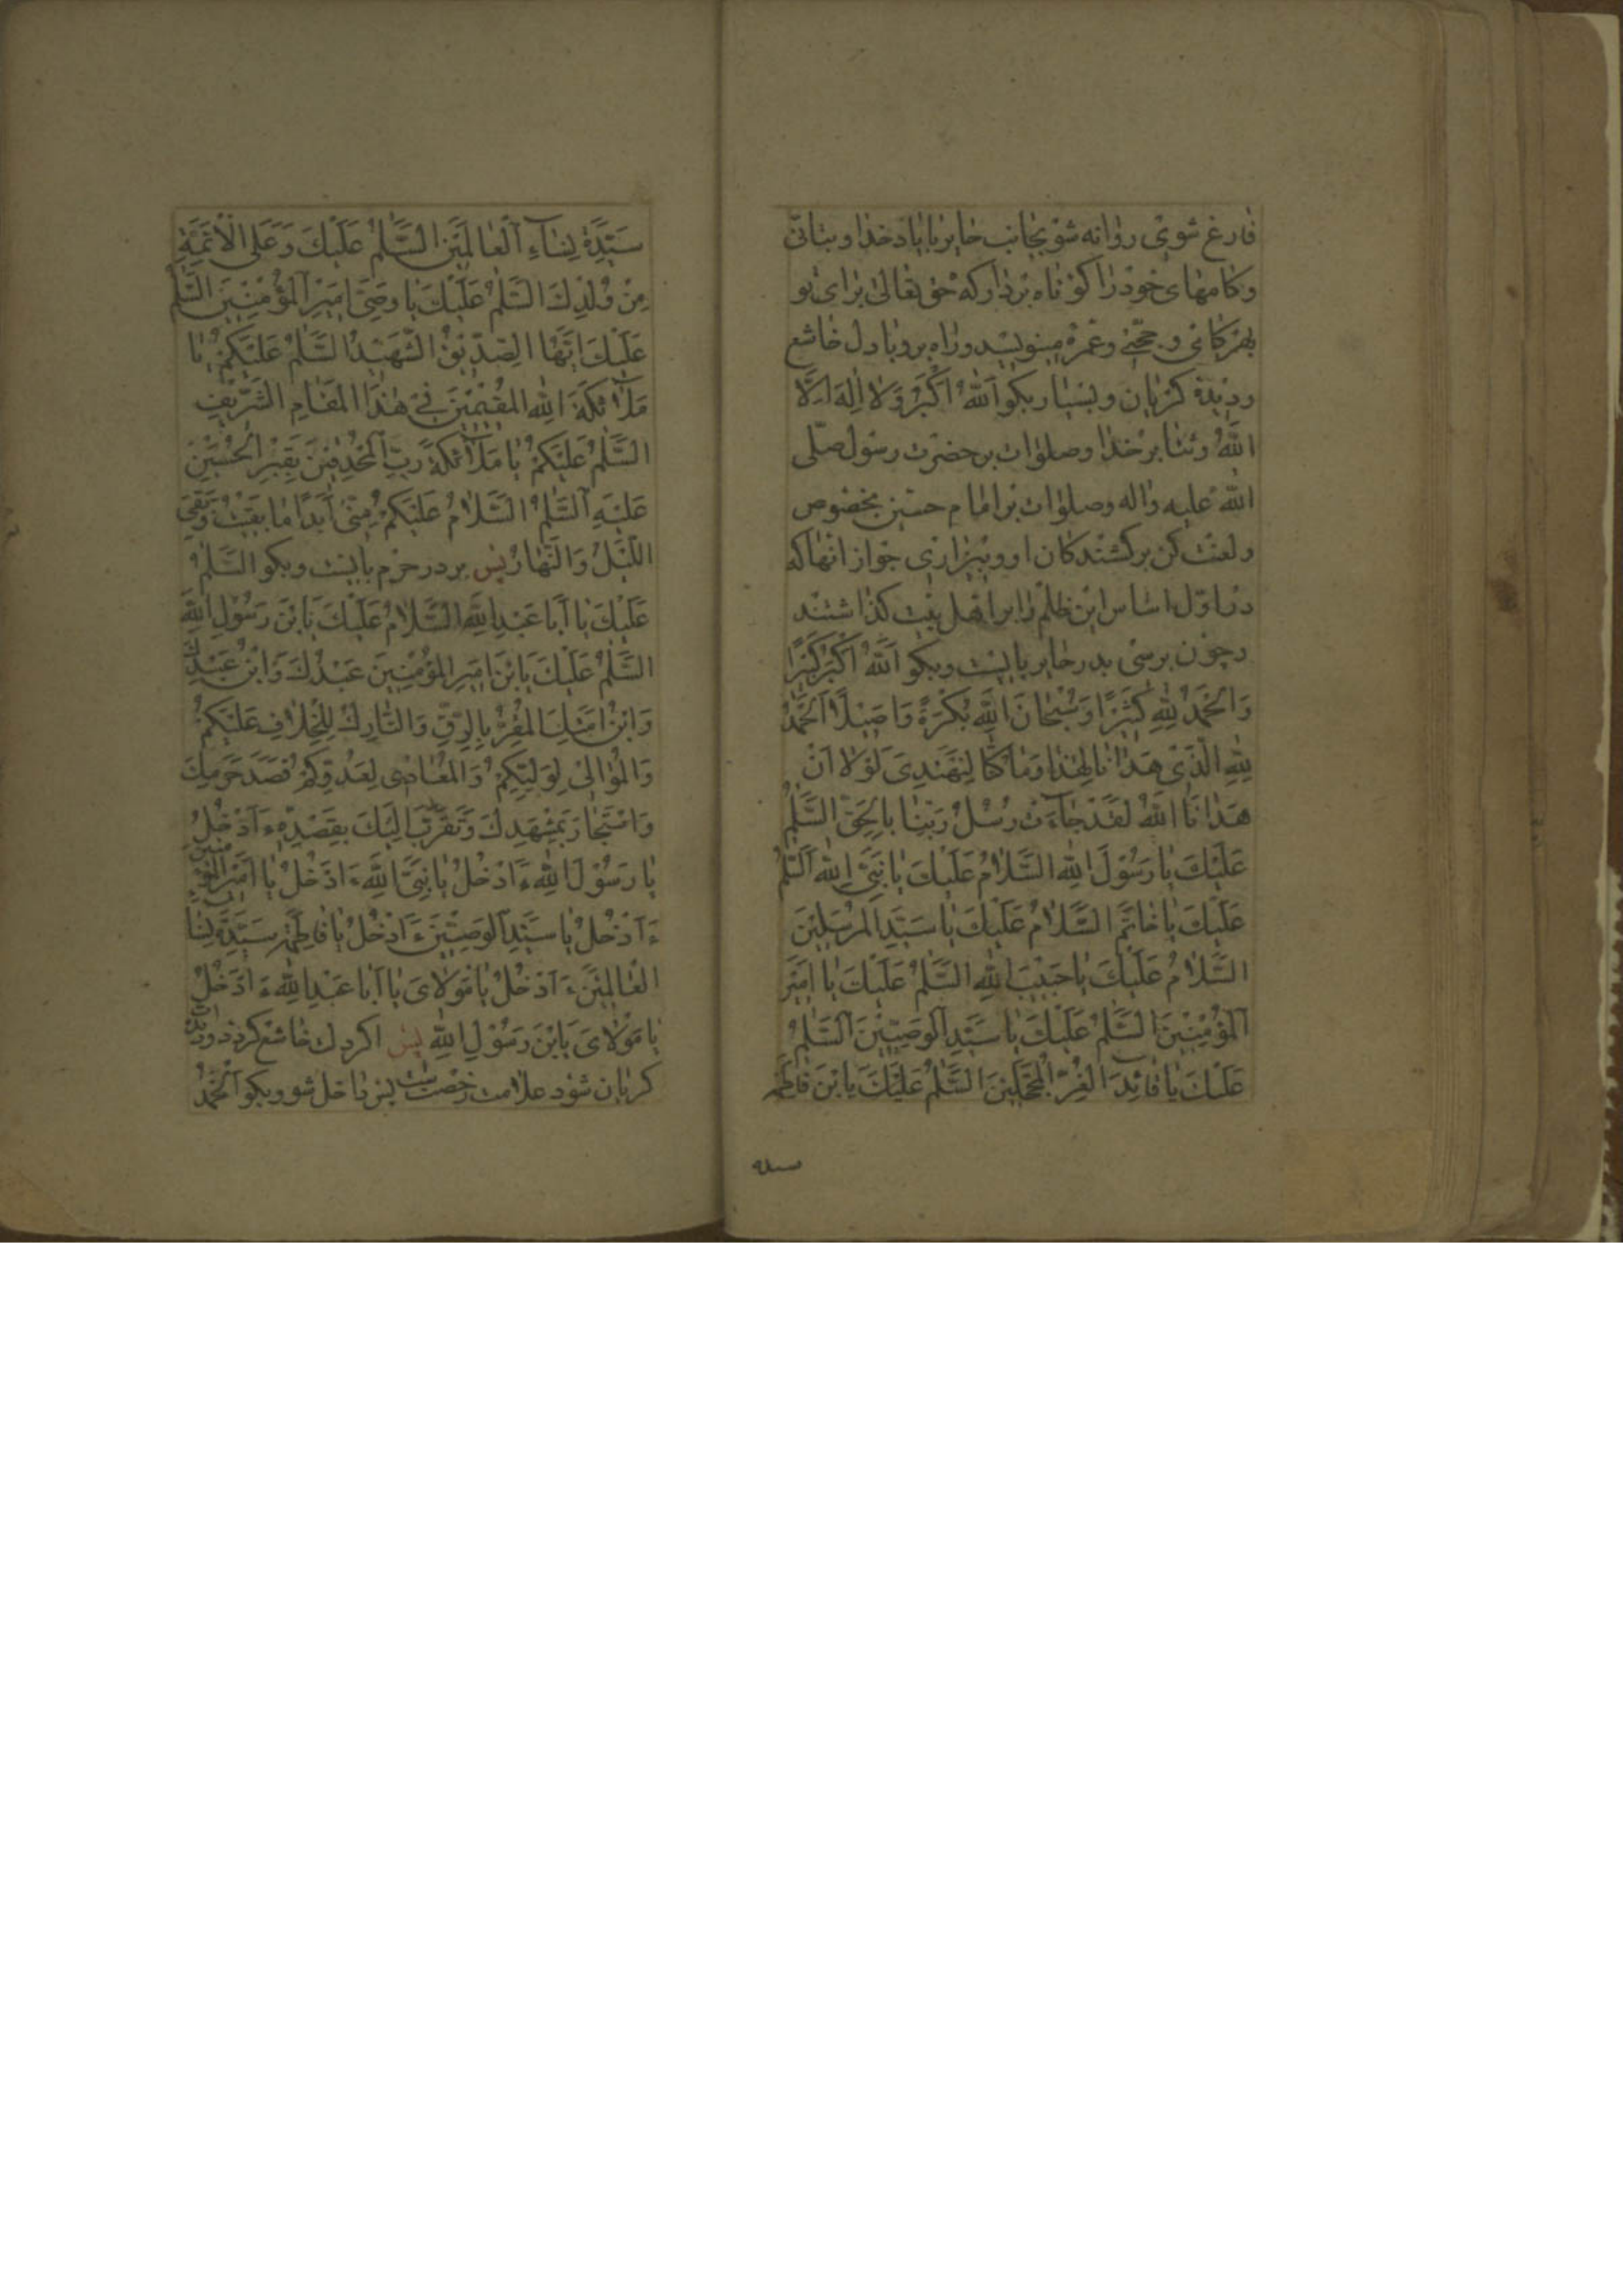 فارغ شوی روانه شو بجانب حایر با یاد خدا و بتانّی
و کامهای خود را کوتاه بردار که حق تعالی برای تو
بهر کامی و حجّی و عمرهٔ مینویسد و راه برو با دل خاشع
و دیدهٔ کریان و بسیار بکو اَللّٰهُ اَکْبَرُ وَ لا اِلٰهَ اِلَّا
اللّٰهُ و ثنا بر خدا و صلوات بر حضرت رسول صلّی
اللّه علیه و اله و صلوات بر امام حسین بخصوص
و لعنت کن بر کشندکان او و بیزاری جو از انها که
در اوّل اساس این ظلم را بر اهل بیت کذاشتند
و چون برسی بدر حایر بایست و بکو اَللّٰهُ اَکْبَرُ کَبیرًا
وَ الْحَمْدُ لِلّٰهِ کَثیرًا وَ سُبْحانَ اللّٰهِ بُکْرَةً وَ اَصیلًا اَلْحَمْدُ
لِلّٰهِ الَّذی هَدانا لِهٰذا وَ ما کُنّا لِنَهْتَدِیَ لَوْلا اَنْ
هَدانَا اللّٰهُ لَقَدْ جاءَتْ رُسُلُ رَبِّنا بِالْحَقِّ السَّلٰمُ
عَلَیْكَ یا رَسُولَ اللّٰهِ السَّلامُ عَلَیْكَ یا نَبِیَّ اللّٰهِ اَلسَّلٰمُ
عَلَیْكَ یا خاتَمَ السَّلامُ عَلَیْكَ یا سَیِّدَ المُرْسَلینَ
السَّلامُ عَلَیْكَ یا حَبیبَ اللّٰهِ السَّلٰمُ عَلَیْكَ یا اَمیرَ
اَلمُؤْمِنینَ السَّلٰمُ عَلَیْكَ یا سَیِّدَ الوَصِیّینَ اَلسَّلٰمُ
عَلَیْكَ یا قائِدَ الغُرِّ المُحَجَّلینَ السَّلٰمُ عَلَیْكَ یا ابْنَ فاطِمَة
سیدة
سَیِّدَةِ نِساءِ العالَمینَ السَّلٰمُ عَلَیْكَ وَ عَلَی الْاَئِمَّةِ
مِنْ وُلْدِكَ السَّلٰمُ عَلَیْكَ یا وَصِیَّ اَمیرِ المُؤْمِنینَ السَّلٰمُ
عَلَیْكَ اَیُّهَا الصِّدّیقُ الشَّهیدُ السَّلٰمُ عَلَیْکُمْ یا
مَلائِکَةَ اللّٰهِ المُقیمینَ فی هٰذَا المَقامِ الشَّریفِ
السَّلٰمُ عَلَیْکُمْ یا مَلائِکَةَ رَبِّی المُحْدِقینَ بِقَبْرِ الْحُسَیْنِ
عَلَیْهِ السَّلٰمُ السَّلامُ عَلَیْکُمْ مِنّی اَبَدًا ما بَقیتُ وَ بَقِیَ
اللَّیْلُ وَ النَّهارُ پس بر در حرم بایست و بکو السَّلٰمُ
عَلَیْكَ یا اَبا عَبْدِ اللّٰهِ السَّلامُ عَلَیْكَ یَا بْنَ رَسُولِ اللّٰهِ
السَّلٰمُ عَلَیْكَ یَا بْنَ اَمیرِ المُؤْمِنینَ عَبْدُكَ وَ ابْنُ عَبْدِكَ
وَ ابْنُ اَمَتِكَ المُقِرُّ بِالرِّقِّ وَ التّارِكُ لِلْخِلافِ عَلَیْکُمْ
وَ المُوالی لِوَلِیِّکُمْ وَ المُعادی لِعَدُوِّکُمْ قَصَدَ حَرَمَكَ
وَ اسْتَجارَ بِمَشْهَدِكَ وَ تَقَرَّبَ اِلَیْكَ بِقَصْدِهِ ءَاَدْخُلُ
یا رَسُولَ اللّٰهِ ءَاَدْخُلُ یا نَبِیَّ اللّٰهِ ءَاَدْخُلُ یا اَمیرَ المُؤْمِنینَ
ءَاَدْخُلُ یا سَیِّدَ الوَصِیّینَ ءَاَدْخُلُ یا فاطِمَةُ سَیِّدَةَ نِساءِ
العالَمینَ ءَاَدْخُلُ یا مَوْلایَ یا اَبا عَبْدِ اللّٰهِ ءَاَدْخُلُ
یا مَوْلایَ یَا بْنَ رَسُولِ اللّٰهِ پس اکر دل خاشع کردد و دیده
کریان شود علامت رخصت است پس داخل شو و بکو اَلْحَمْدُ